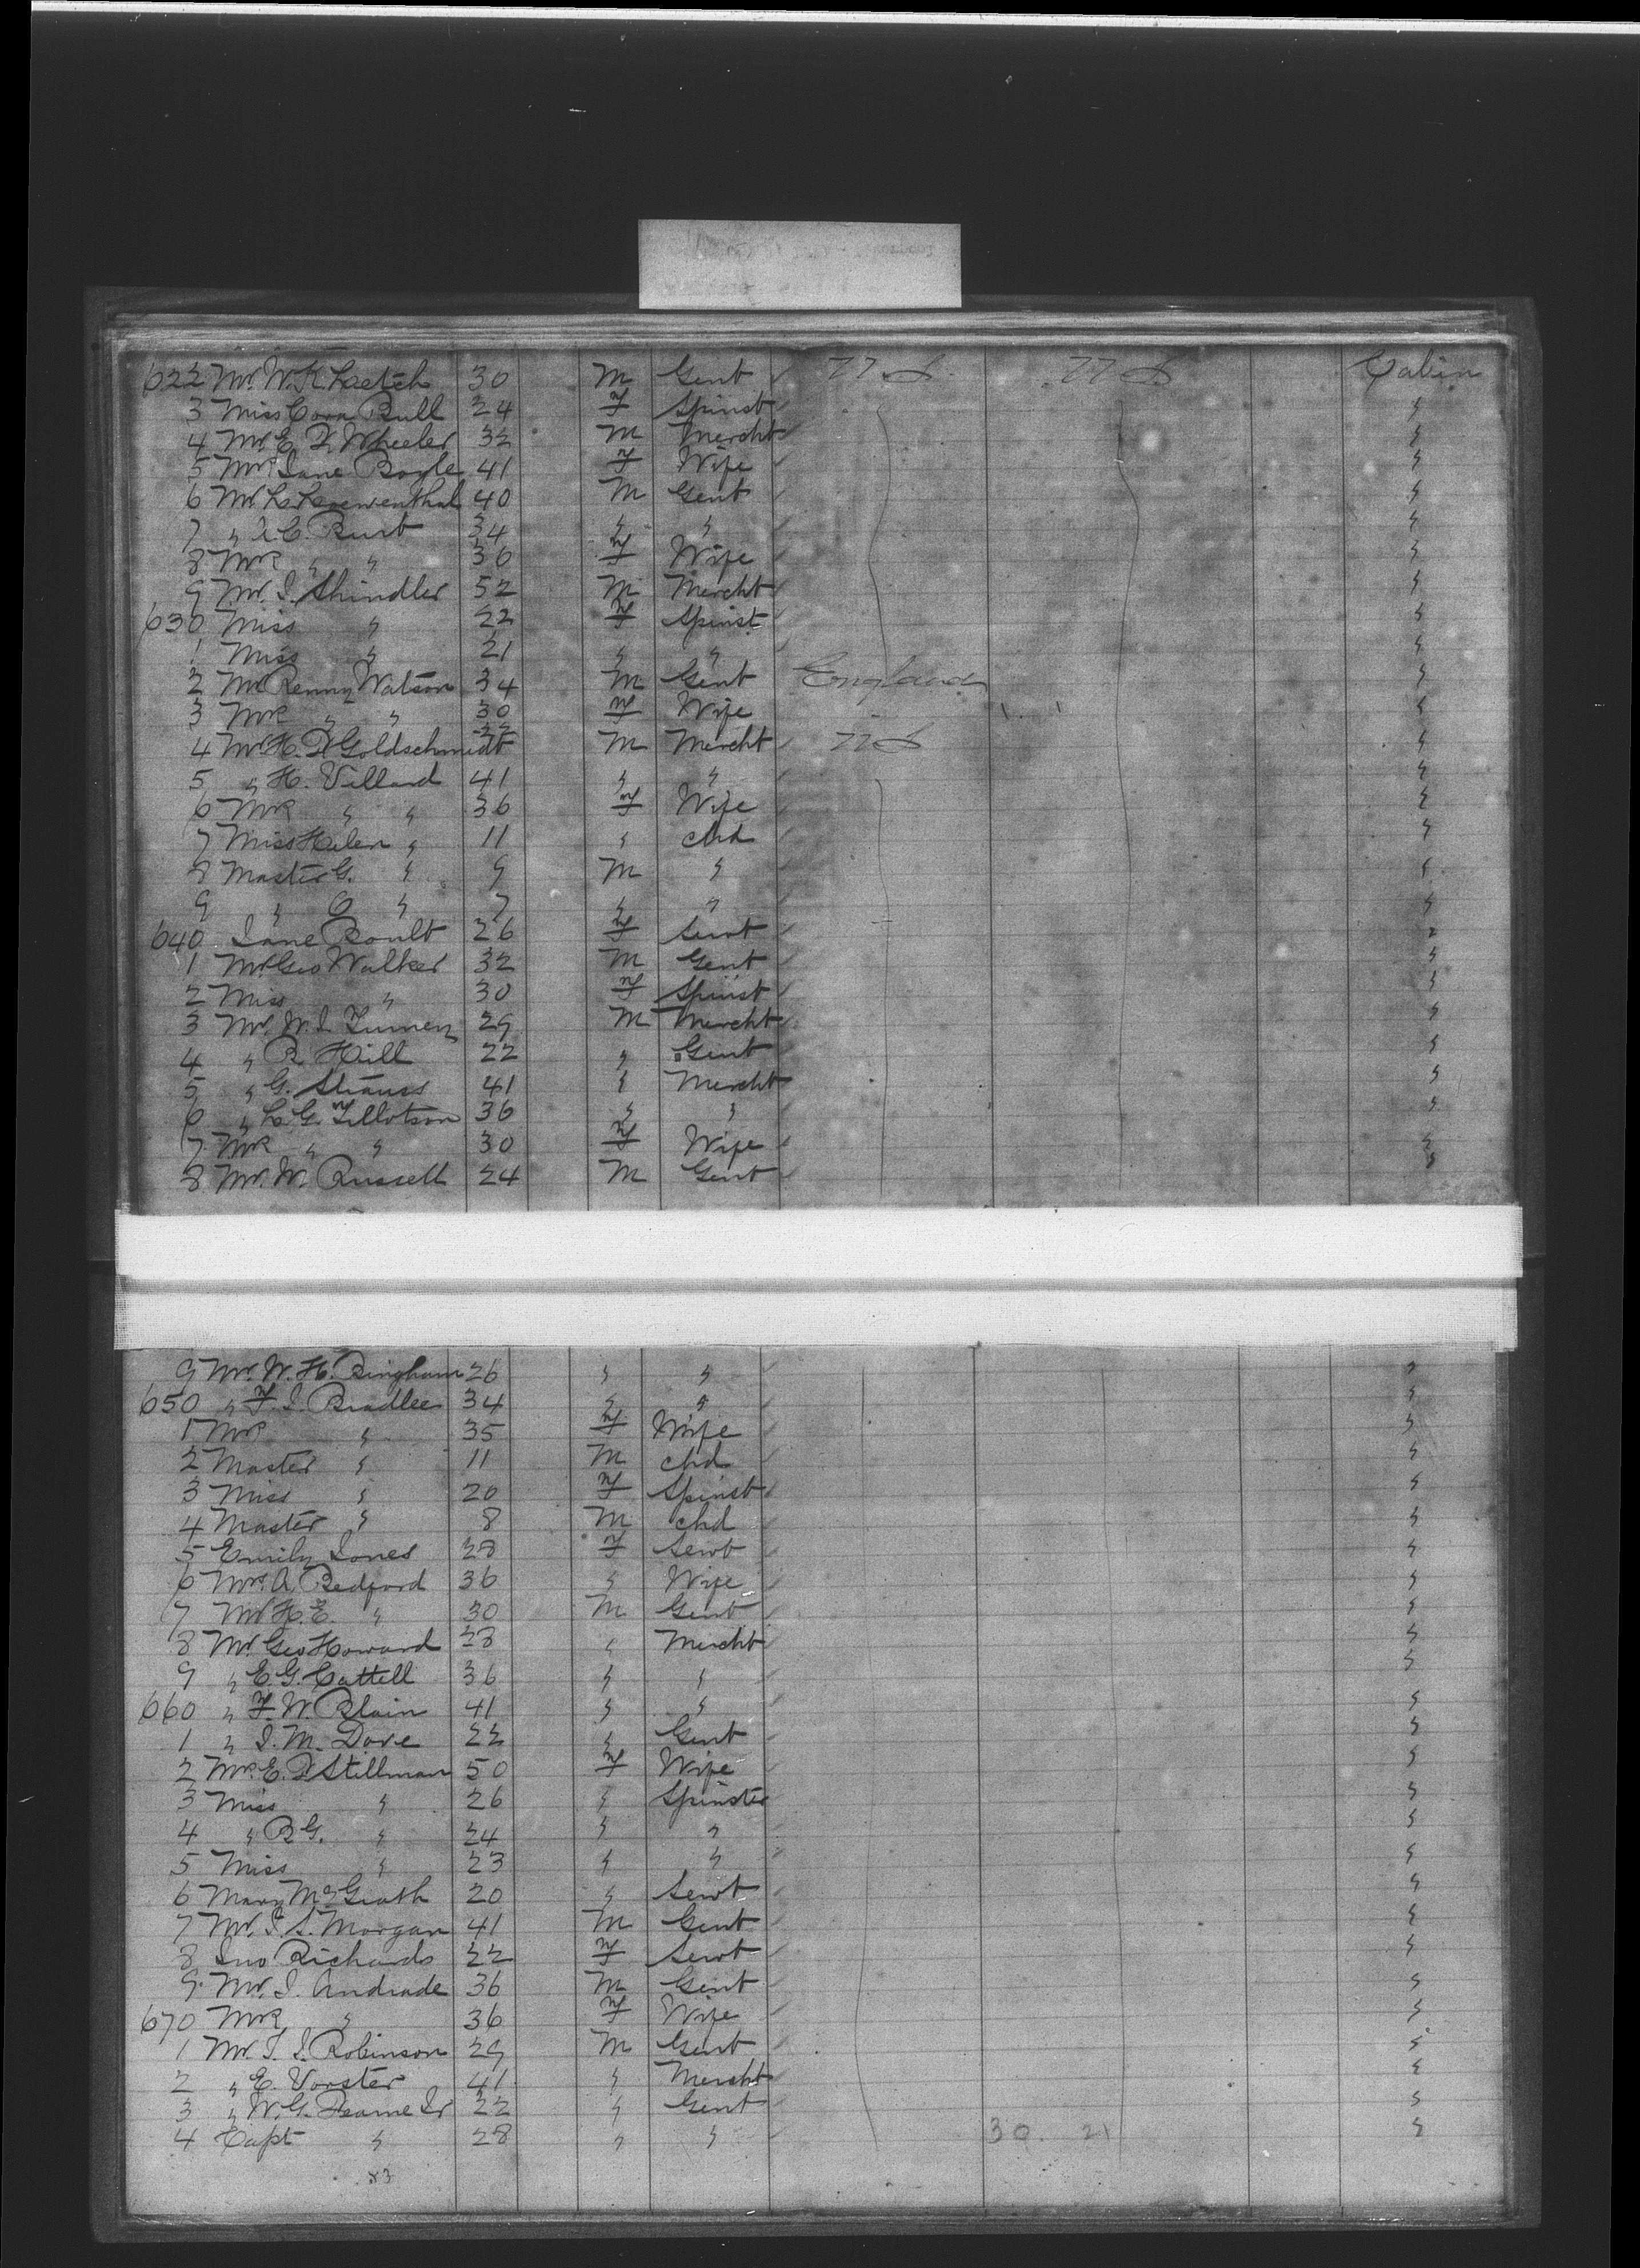 622 Mr. W. K. Loetch 30 M Gent U S U S Cabin
3 Miss Cora Bull 24 F Spinst "
4 Mr. E. F. Wheeler 32 M Mercht "
5 Mrs Jane Boyle 41 F Wife "
6 Mr. L. Loewenthal 40 M Gent "
7 " A. C. Burt 34 " " "
8 Mrs " " 36 F Wife "
9 Mr. I. Shindler 52 M Mercht "
630 Miss " 22 F Spinst "
1 Miss " 21 " " "
2 Mr Renny Watson 34 M Gent England "
3 Mrs " " 30 F Wife "
4 Mr H. F. Goldschmidt 22 M Mercht U S "
5 " H. Villard 41 " " "
6 Mrs " " 36 F Wife "
7 Miss Helen " 11 " chd "
8 Master G. " 9 M " "
9 " O " 7 " " "
640 Jane Boult 26 F Servt "
1 Mr Geo Walker 32 M Gent "
2 Miss " 30 F Spinst "
3 Mr. W. I. 29 M Mercht "
4 " R Hill 22 " Gent "
5 " G. Strauss 41 " Mercht "
6 " L. G. Tillotson 36 " " "
7 Mrs " " 30 F Wife "
8 Mr. W. Russell 24 M Gent "
9 Mr. W. H. Bingham 26 " " "
650 " F. J. Bradlee 34 " " "
1 Mrs " 35 F Wife "
2 Master " 11 M chd "
3 Miss " 20 F Spinst "
4 Master " 8 M chd "
5 Emily Jones 28 F Servt "
6 Mrs. A. Bedford 36 " Wife "
7 Mr H. E. " 30 M Gent "
8 Mr. Geo Howard 28 " Mercht "
9 " E. G. Cattell 36 " " "
660 " F. W. Blain 41 " " "
1 " J. M. Dove 22 " Gent "
2 Mrs. E. F Stillman 50 F Wife "
3 Miss " 26 " Spinster "
4 " B G. " 24 " " "
5 Miss " 23 " " "
6 Mary McGrath 20 " Servt "
7 Mr. J. S. Morgan 41 M Gent "
8 Jno Richards 22 F Servt "
9 Mr. J. Andrade 36 M Gent "
670 Mrs " 36 F Wife "
1 Mr. T. J. Robinson 29 M Gent "
2 " E. Vorster 41 " Mercht "
3 " W. G. Fearne Jr 22 " Gent "
4 Capt " 28 " " 30 21 "